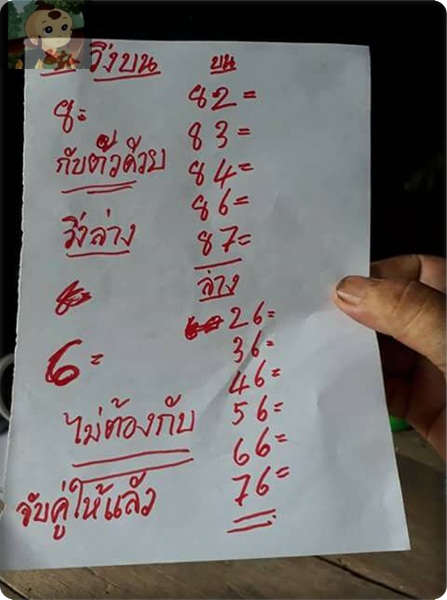 วิ่งบน
8=
กับตัวด้วย
วิ่งล่าง
6=
ไม่ต้องกับ
จับคู่ให้แล้ว
บน
82=
83=
84=
86=
87=
ล่าง
26=
36=
46=
56=
66=
76=